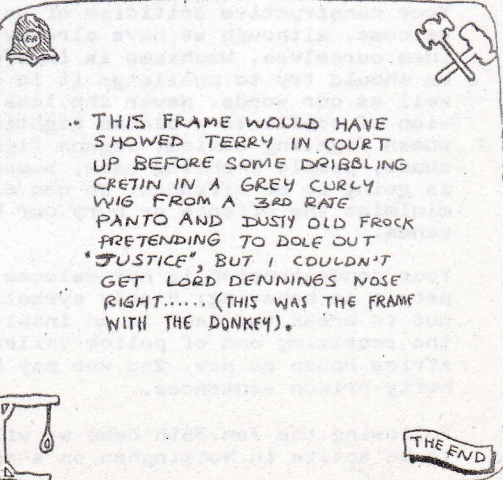 ER
.. THIS FRAME WOULD HAVE
SHOWED TERRY IN COURT
UP BEFORE SOME DRIBBLING
CRETIN IN A GREY CURLY
WIG FROM A 3RD RATE
PANTO AND DUSTY OLD FROCK
PRETENDING TO DOLE OUT
"JUSTICE", BUT I COULDN'T
GET LORD DENNINGS NOSE
RIGHT.....(THIS WAS THE FRAME
WITH THE DONKEY).
THE END